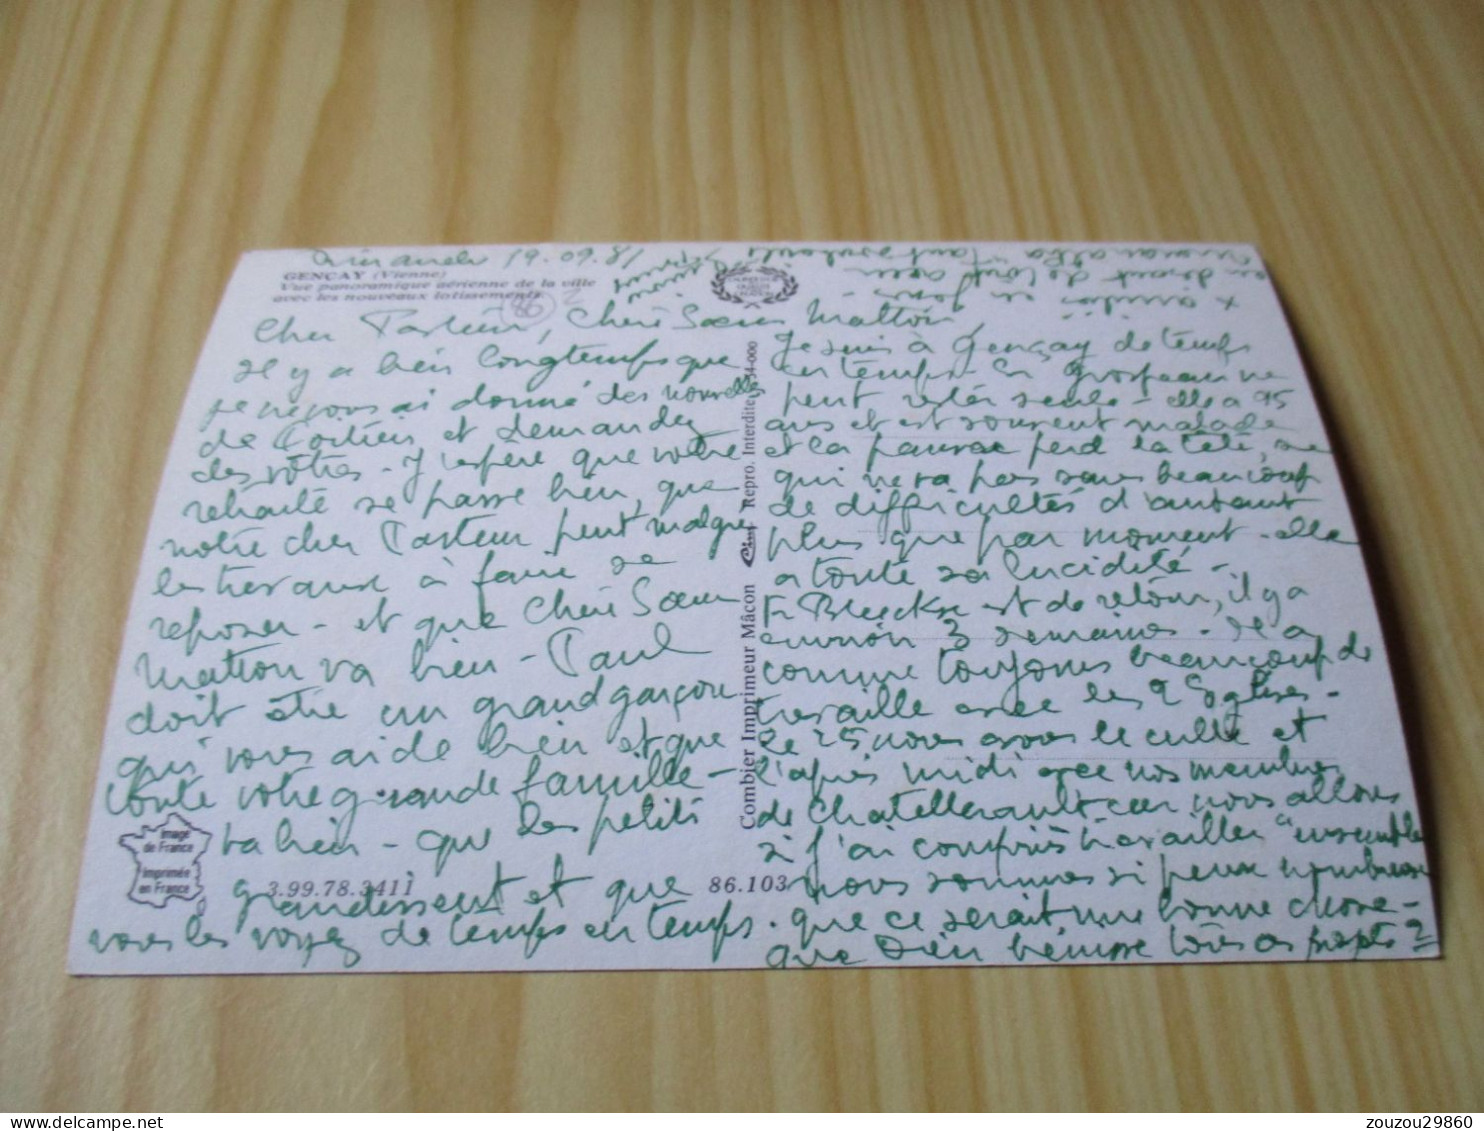 19.09.81
GENÇAY (Vienne)
Vue panoramique aérienne de la ville
avec les nouveaux lotissements.
86
2
Cher Pasteur, Chère Sœur Matton,
Il y a bien longtemps que
je ne vous ai donné des nouvelles
de Poitiers et demandez
des vôtres - J'espère que votre
retraite se passe bien, que
notre cher Pasteur peut malgré
les travaux à faire se
reposer - et que Chère Sœur
Matton va bien - Paul
doit être un grand garçon
qui vous aide bien et que
toute votre grande famille -
va bien - que les petits
grandissent et que
vous les voyez de temps en temps.
Image
de France
Imprimée
en France
3.99.78.3411
86.103
Combier Imprimeur Mâcon Cim Repro. Interdite 54-000
Je suis à Gençay de temps
en temps. Grosjean ne
peut rester seule - elle a 95
ans et est souvent malade
et la pauvre perd la tête, ce
qui ne va pas sans beaucoup
de difficultés d'autant
plus que par moment - elle
a toute sa lucidité -
Fr est de retour, il y a
environ 3 semaines - Il a
comme toujours beaucoup de
travaille avec les 2 Eglises -
Le 25 nous avons le culte et
l'après midi avec nos membres
de Chatellerault car nous allons
si j'ai compris travailler "ensemble
nous sommes si peux nombreux
que ce serait une bonne chose -
que Dieu bénisse
zouzou29860